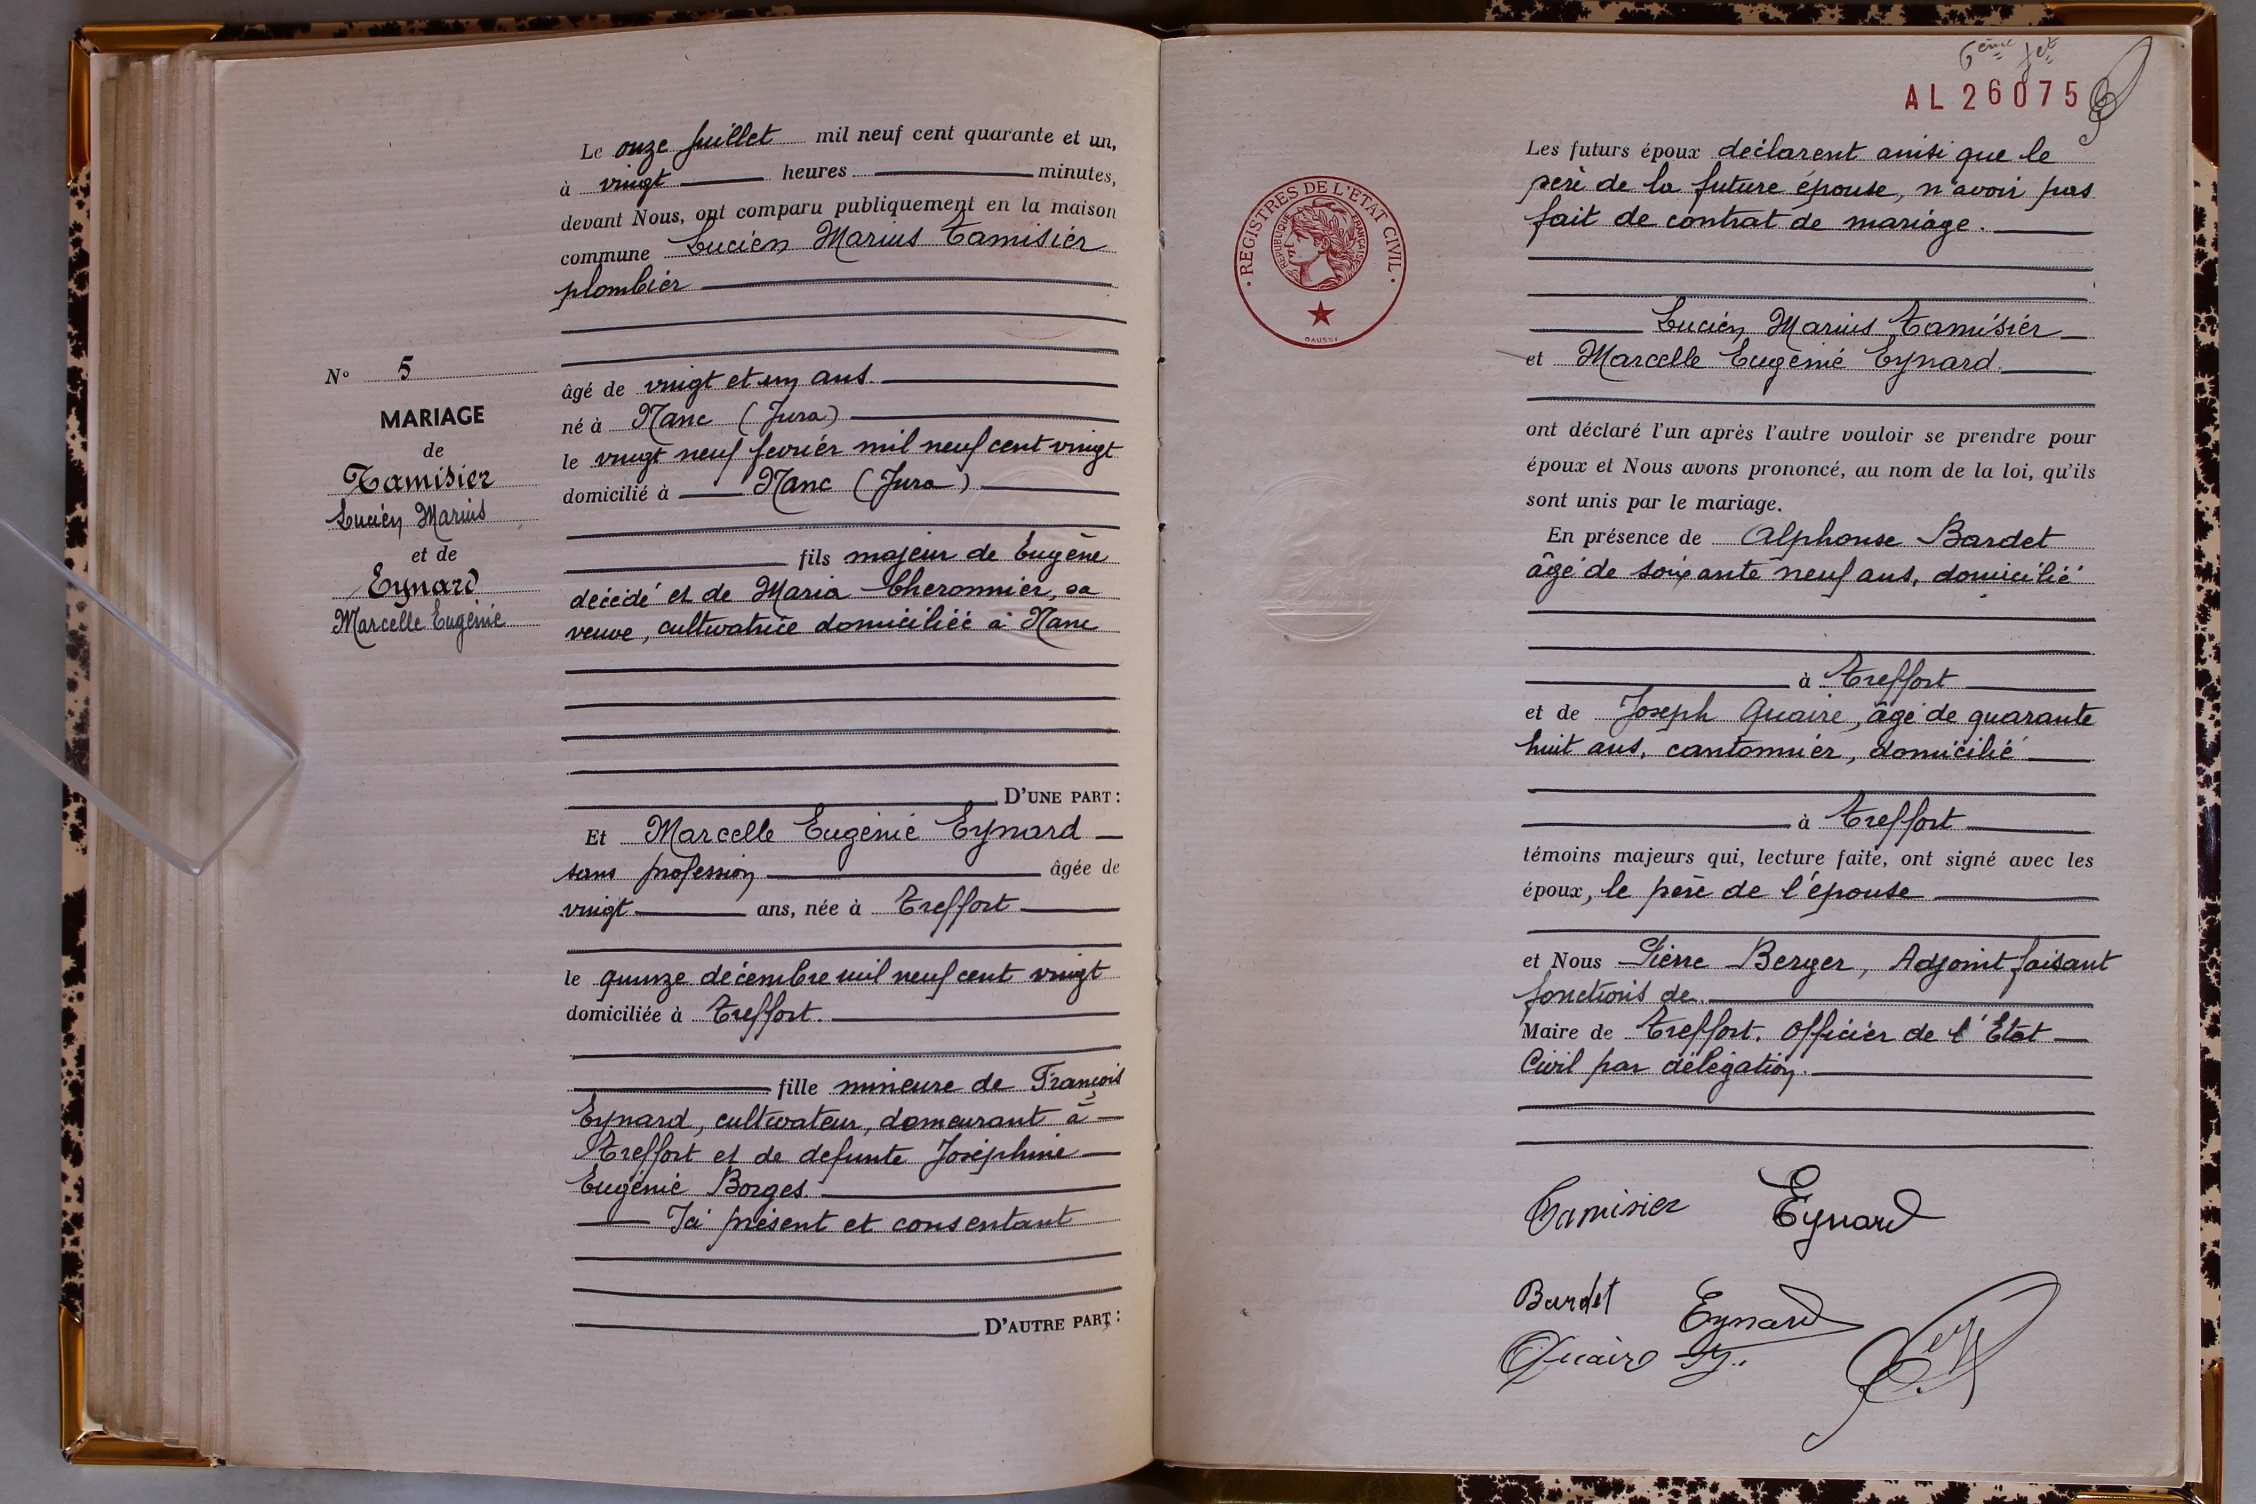 Le onze Juillet mil neuf cent quarante et un,
à vingt heures minutes,
devant Nous, ont comparu publiquement en la maison
commune Lucien Marius Tamisier
plombier
N° 5
MARIAGE
de
Tamisier
Lucien Marius
et de
Eynard
Marcelle Eugénie
âgé de vingt et un ans.
né à Nanc (Jura)
le vingt neuf février mil neuf cent vingt
domicilié à Nanc (Jura)
fils majeur de Eugène
décédé et de Maria Cheronnier, sa
veuve, cultivatrice domiciliée à Nanc
D'UNE PART :
Et Marcelle Eugénie Eynard
sans profession âgée de
vingt ans, née à Treffort
le quinze décembre mil neuf cent vingt
domiciliée à Treffort.
fille mineure de François
Eynard, cultivateur, demeurant à
Treffort et de defunte Joséphine
Eugénie Borges.
Ici présent et consentant
D'AUTRE PART :
6ème fet
AL 26075
REGISTRES DE L'ÉTAT CIVIL
RÉPUBLIQUE FRANÇAISE
DAUSSI
Les futurs époux déclarent ainsi que le
père de la future épouse, n'avoir pas
fait de contrat de mariage.
Lucien Marius Tamisier
et Marcelle Eugénie Eynard.
ont déclaré l'un après l'autre vouloir se prendre pour
époux et Nous avons prononcé, au nom de la loi, qu'ils
sont unis par le mariage.
En présence de Alphonse Bardet
âgé de soixante neuf ans, domicilié
à Treffort
et de Joseph Quaire, âgé de quarante
huit ans, cantonnier, domicilié
à Treffort
témoins majeurs qui, lecture faite, ont signé avec les
époux, le père de l'épouse
et Nous Pierre Berger, Adjoint faisant
fonctions de
Maire de Treffort. Officier de l'Etat
Civil par délégation.
Tamisier Eynard
Bardet Eynard
Quaire